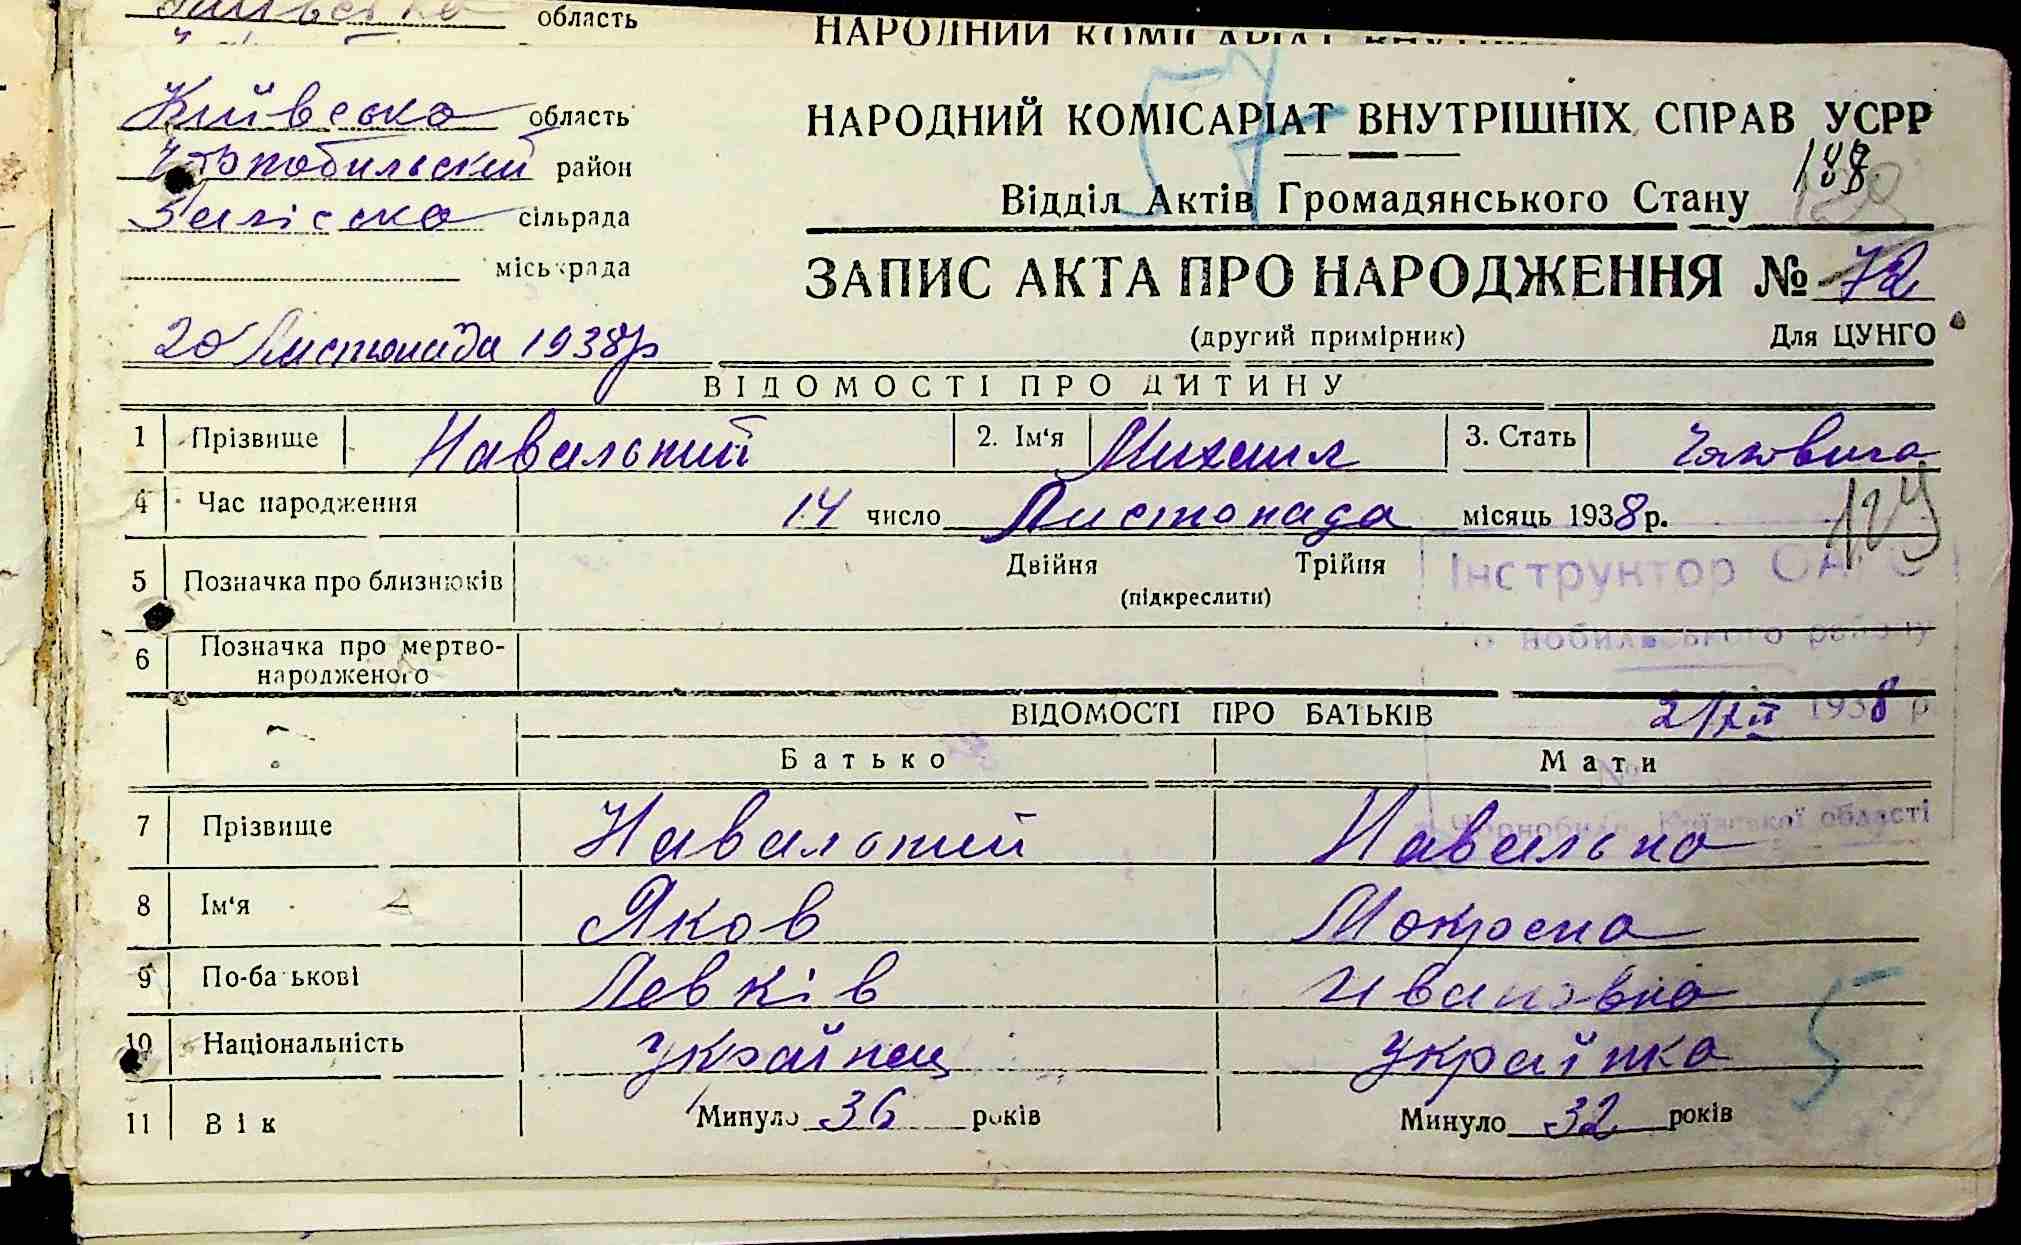 область
НАРОДНИЙ КОМІСАРІАТ
Київська область
Чорнобильський район
Залісська сільрада
міськрада
57
НАРОДНИЙ КОМІСАРІАТ ВНУТРІШНІХ СПРАВ УСРР
Відділ Актів Громадянського Стану
188
ЗАПИС АКТА ПРО НАРОДЖЕННЯ № 72
(другий примірник) Для ЦУНГО
20 Листопада 1938 р
ВІДОМОСТІ ПРО ДИТИНУ
1 Прізвище Навальний 2. Ім'я Михаил 3. Стать
4 Час народження 14 число Листопада місяць 1938 р.
129
5 Позначка про близнюків Двійня Трійня
(підкреслити)
Інструктор
6 Позначка про мертво-
народженого
нобильського району
ВІДОМОСТІ ПРО БАТЬКІВ
2/XII 1938 р
Батько Мати
Чорнобиль Київської області
7 Прізвище Навальний Навальна
8 Ім'я Яков Мокрена
9 По-батькові Левків Ивановна
10 Національність українец українка
5
11 Вік Минуло 36 років Минуло 32 років